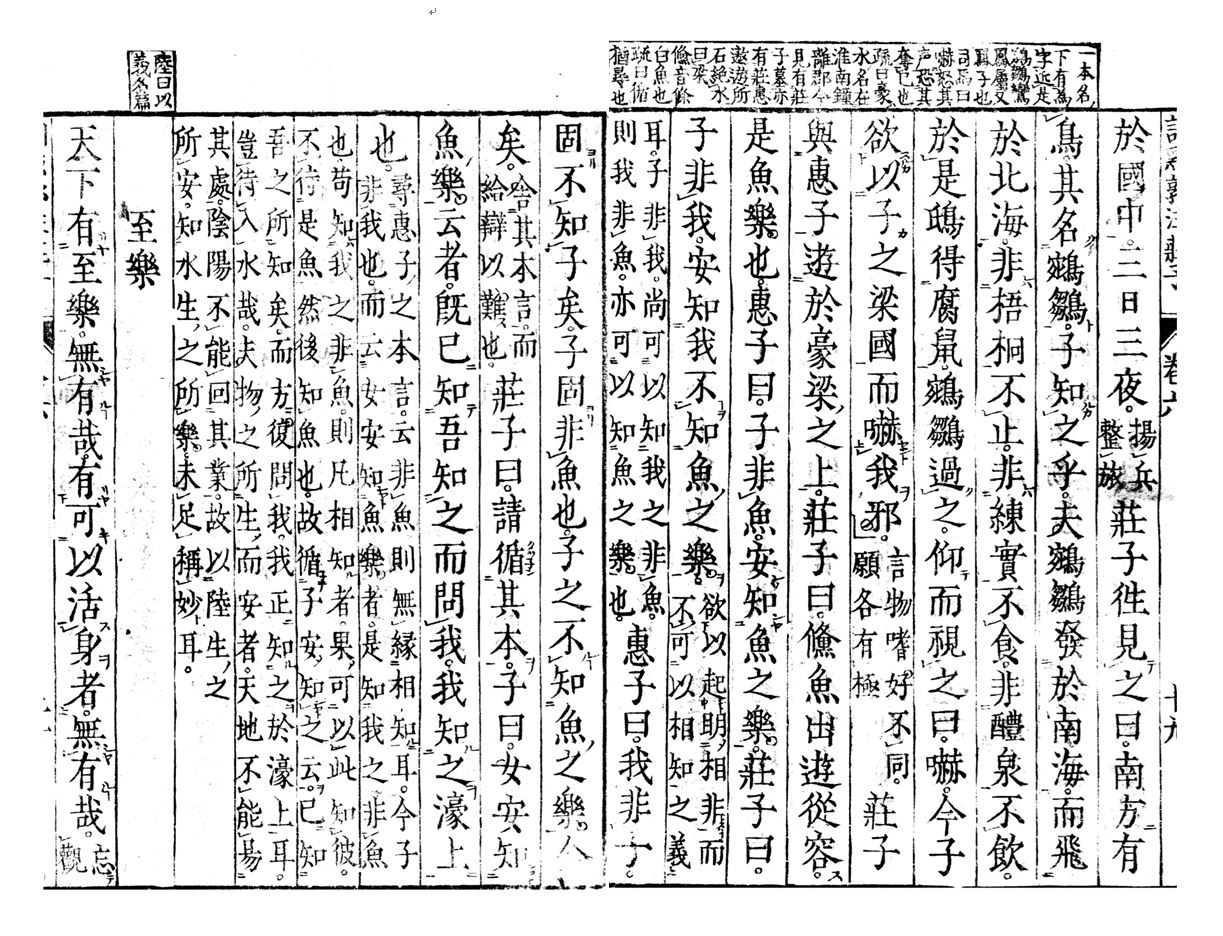 一本名
下有爲
字近是
鵷鶵鸞
鳳屬又
鳳子也
司馬曰
嚇怒其
声恐其
奪己也
疏曰豪
水名在
淮南鍾
離郡今
見有莊
子墓亦
有莊惠
遨遊所
石絶水
曰梁
儵音條
白魚也
疏曰循
猶尋也
於國中三日三夜揚兵整旅莊子徃見之曰南方有
鳥其名鵷鶵子知之乎夫鵷鶵發於南海而飛
於北海非梧桐不止非練實不食非醴泉不飲
於是鴟得腐䑕鵷鶵過之仰而視之曰嚇今子
欲以子之梁國而嚇我邪言物嗜好不同願各有極莊子
與惠子遊於豪梁之上莊子曰儵魚出遊從容
是魚樂也惠子曰子非魚安知魚之樂莊子曰
子非我安知我不知魚之樂欲以起明相非而不可以相知之義
耳子非我尚可以知我之非魚
則我非魚亦可以知魚之樂也惠子曰我非子
固不知子矣子固非魚也子之不知魚之樂
矣舍其本言而給辯以難也莊子曰請循其本子曰女安知
魚樂云者既已知吾知之而問我我知之濠上
也尋惠子之本言云非魚則無縁相知耳今子
非我也而云女安知魚樂者是知我之非魚
也苟知我之非魚則凡相知者果可以此知彼
不待是魚然後知魚也故循子安知之云已知
吾之所知矣而方復問我我正知之於濠上耳
豈待入水哉夫物之所生而安者天地不能昜
其處陰陽不能回其業故以陸生之
所安知水生之所樂未足稱妙耳
陸曰以
義名篇
至樂
天下有至樂無有哉有可以活身者無有哉忘觀
卷六